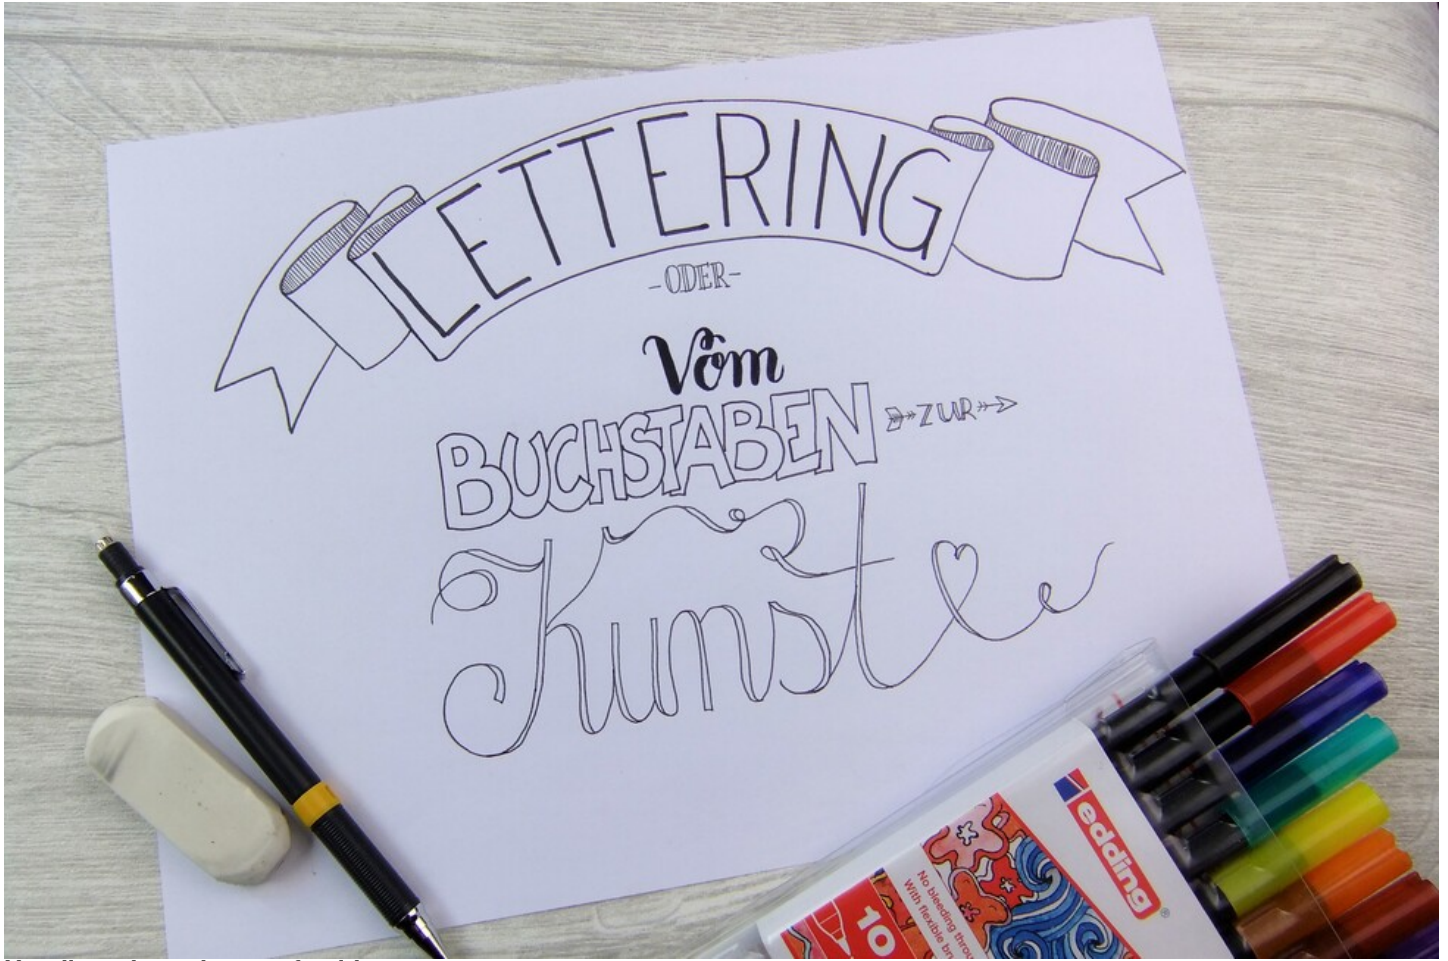 LETTERING
-ODER-
Vom
BUCHSTABEN ZUR
Kunst
edding®
10
No bleeding
With flexible